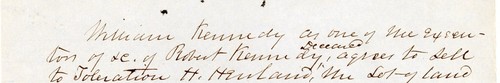 William Kennedy as one of the Execu-
tors of &c. of Robert Kennedy, deceased agrees to sell
to Toleration H. Henland, the Lot of land